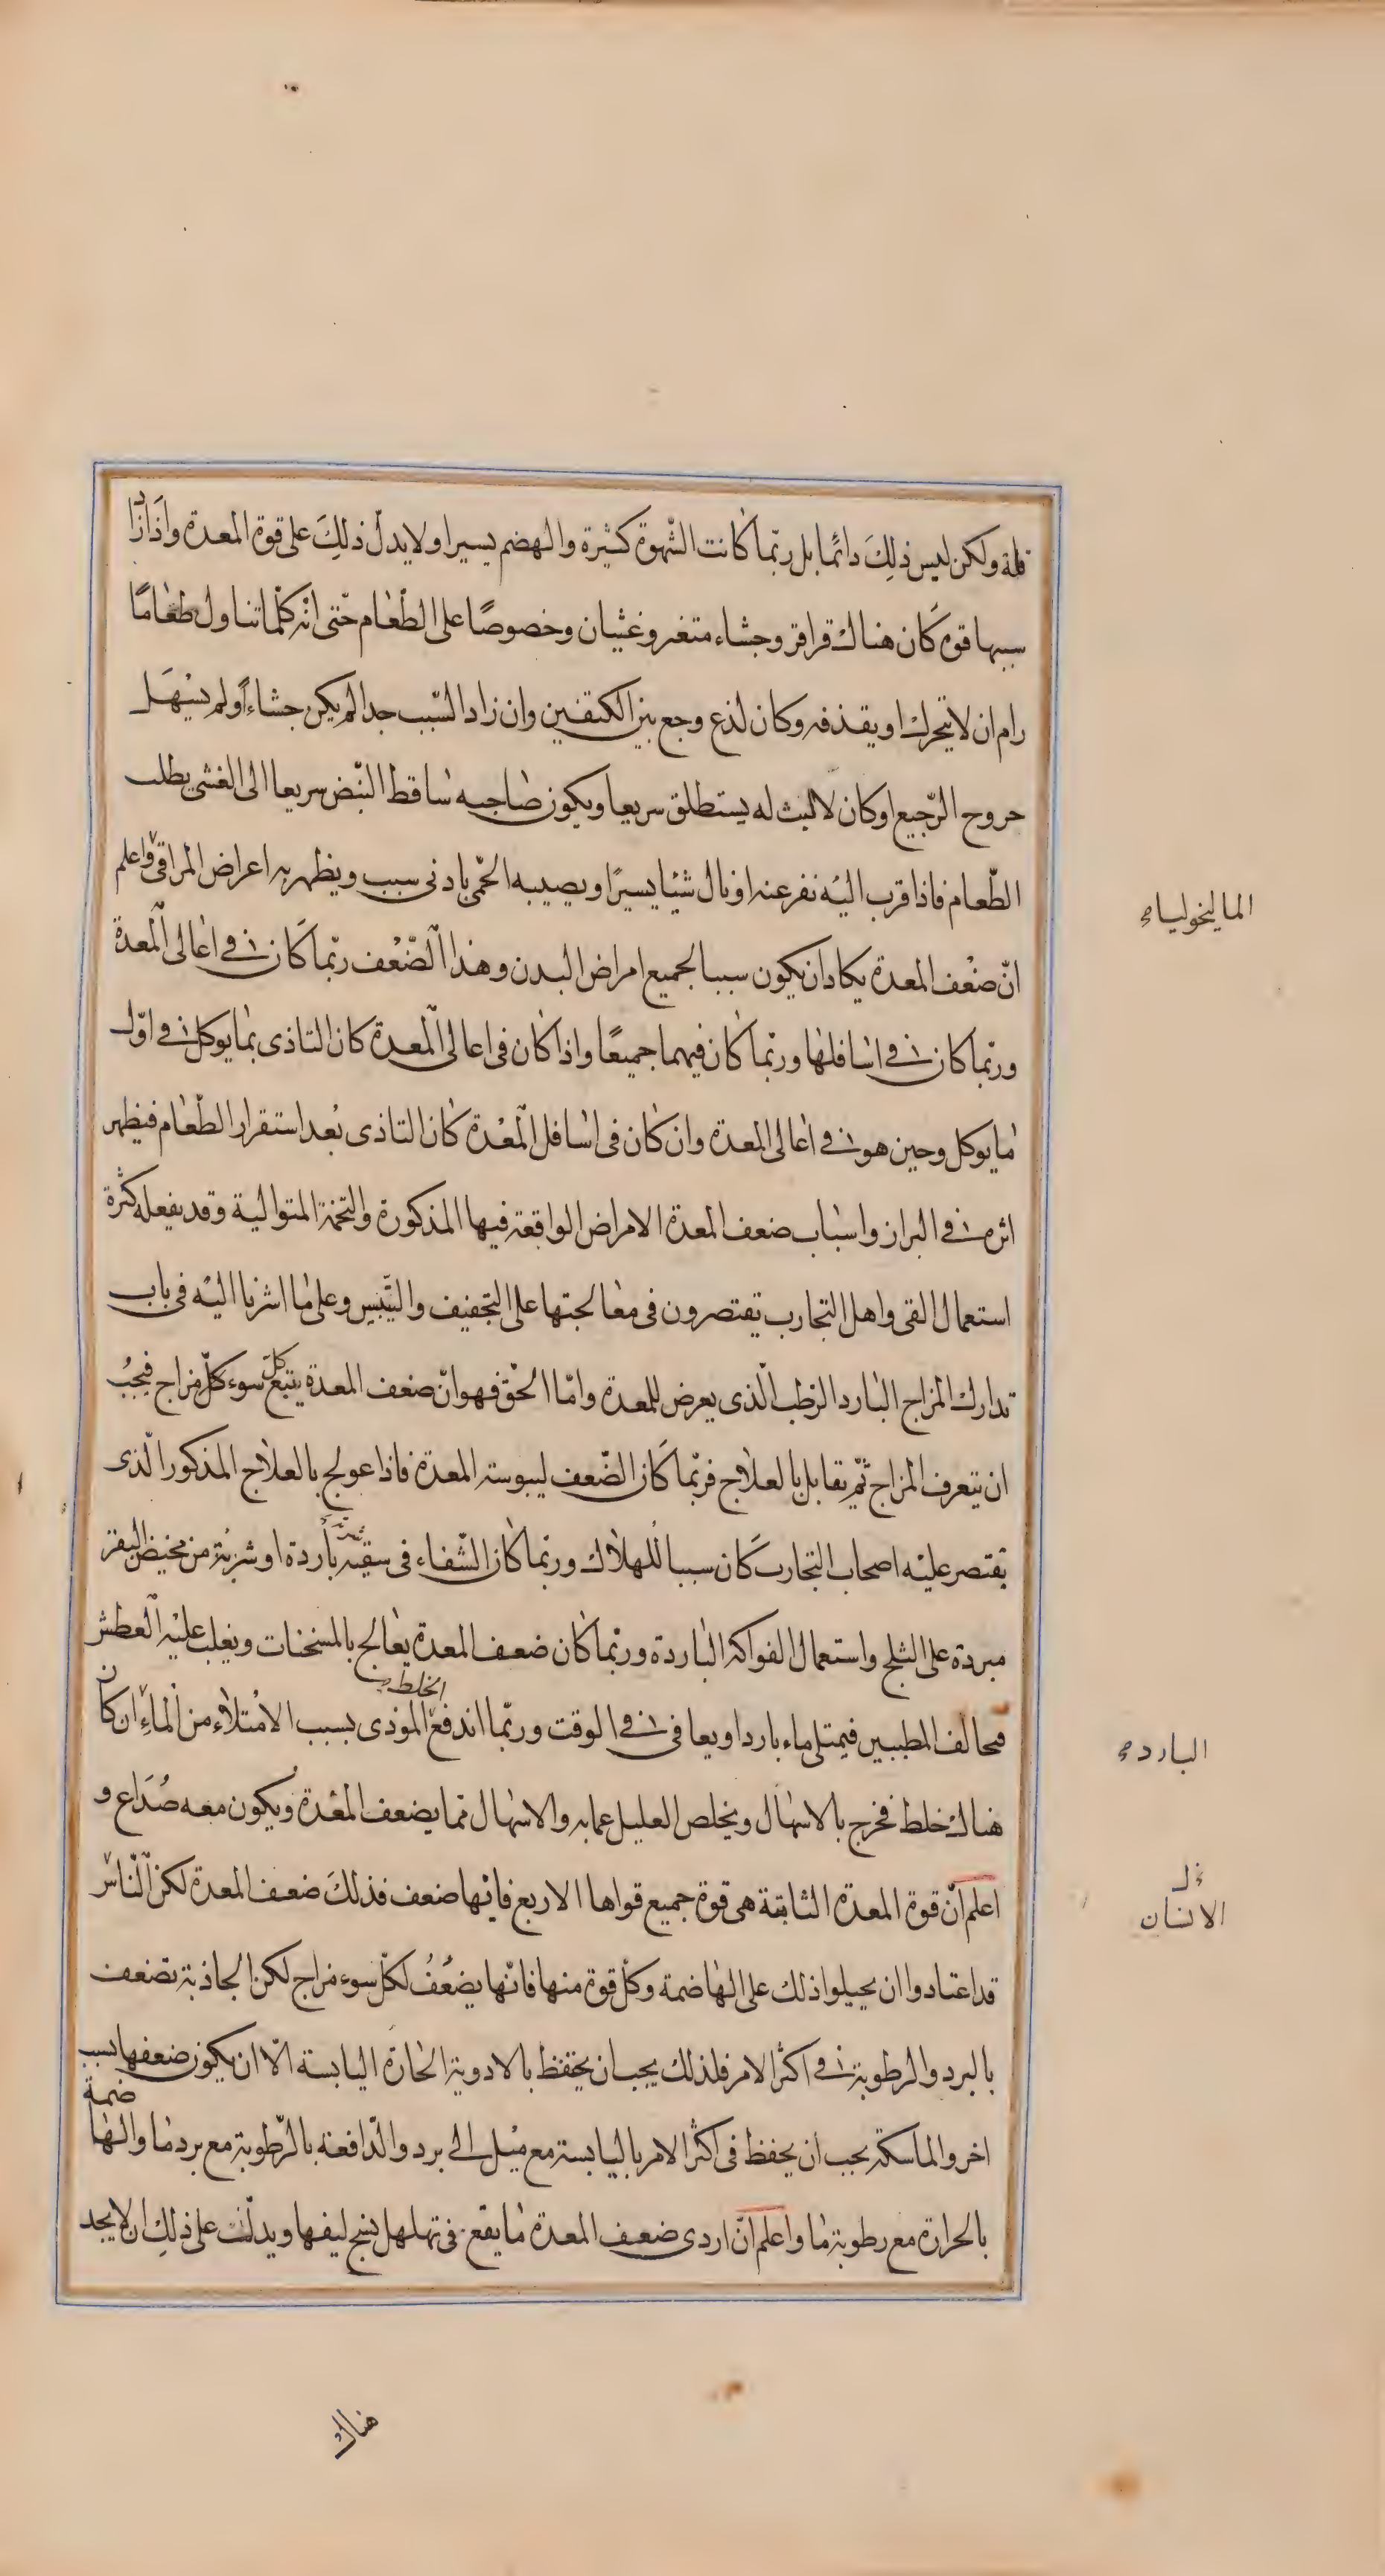 قلة ولكن ليس ذلِكَ دائمًا بل ربّما كانت الشّهوة كثيرة والهضم يسيرا ولا يدل ذلِكَ على قوة المعدة واذا زاد
سببها قوة كَان هناك قراقر وجشاء متغير وغثيان وخصوصًا على الطّعام حتّى انّه كلّما تناول طعامًا
رام ان لا يتحرك او يقذفه وكان لذع وجع بين الكتفين وان زاد السّبب جدا لم يكن جشاءً او لم يسْهَل
خروج الرّجيع او كان لا لبث له يستطلق سريعا ويكون صاحبه ساقط النّبض سريعا الى الغشى يطلب
الطّعام فاذا قرب اليْه نفر عنه او نال شيئا يسيرًا ويصيبه الحّمى بادنى سبب ويظهر به اعراض المراقى واعلم
الماليخولياء
انّ ضعْف المعدة يكاد ان يكون سببا لجميع امراض البدن وهذا الضّعْف ربّما كَان فى اعالى المعدة
وربّما كان فى اسافلها وربّما كان فيهما جميعًا واذا كان فى اعالى المعدة كان التاذى بما يوكل فى اوّل
ما يوكل وحين هو فى اعالى المعدة وان كان فى اسافل المعْدة كان التاذى بعد استقرار الطّعام فيظهر
اثره فى البراز واسباب ضعف المعدة الامراض الواقعة فيها المذكورة والتخمة المتوالية وقد يفعله كثرة
استعمال القى واهل التجارب يقتصرون فى معالجتها على التجفيف والتّيبيس وعلى ما اشرنا اليْه فى باب
تدارك المزاج البارد الرطب الّذى يعرض للمعدة وامّا الحّق فهو انّ ضعف المعدة يتبع كل سوء كلّ مزاج فيجبُ
ان يتعرف المزاج ثمّ يقابل بالعلاج فربّما كَان الضّعف ليبوسته المعدة فاذا عولج بالعلاج المذكور الّذى
يقتصر عليْه اصحاب التجارب كَان سببا للهلاك وربّما كان الشّفاء فى سقيه باردة او شربة من مخيض البقر
مبردة على الثلج واستعمال الفواكه الباردة وربّما كان ضعف المعدة يعالج بالمسخنات ويغلب عليْه العطش
فيخالف المطببين فيمتلى ماء باردا ويعافى فى الوقت وربّما اندفع الخلط الموذى بسبب الامْتلاء من الماءِ ان كان
الباردة
هناك خلط فخرج بالاسهال ويخلص العليل عما به والاسهال مّما يضعف المعْدة ويكون معه صُدَاع و
اعلم انّ قوة المعدة الثابتة هى قوة جميع قواها الاربع فايّها ضعف فذلكَ ضعف المعدة لكن النّاس
الانسان
قد اعتادوا ان يحيلوا ذلك على الهاضمة وكل قوة منها فانّها يضعُفُ لكلّ سوء مزاج لكن الجاذبة تضعف
بالبرد والرطوبة فى اكثر الامر فلذلك يجب ان يحفظ بالادوية الحارة اليابسة الّا ان يكون ضعفها بسبب
اخر والماسكة يجب ان يحفظ فى اكثر الامر باليابسة مع ميْل الى برد والدّافعة بالرّطوبة مع برد ما والهاضمة
بالحرارة مع رطوبة ما واعلم انّ اردى ضعف المعدة ما يقع فى تهلهل نسج ليفها ويدلّك على ذلِك ان لا يجد
هناك